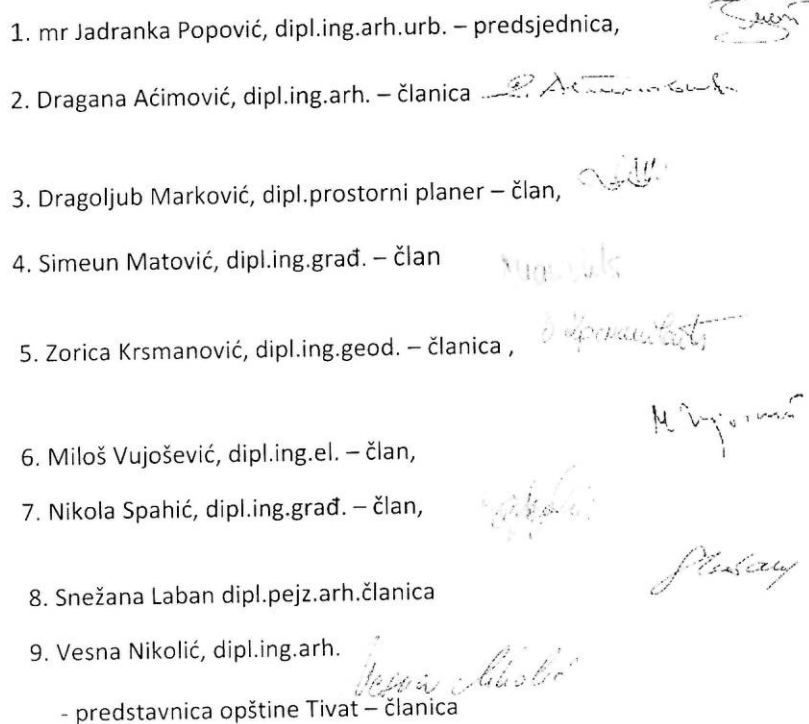 1. mr Jadranka Popović, dipl.ing.arh.urb. – predsjednica,
2. Dragana Aćimović, dipl.ing.arh. – članica
3. Dragoljub Marković, dipl.prostorni planer – član,
4. Simeun Matović, dipl.ing.građ. – član
5. Zorica Krsmanović, dipl.ing.geod. – članica ,
6. Miloš Vujošević, dipl.ing.el. – član,
7. Nikola Spahić, dipl.ing.građ. – član,
8. Snežana Laban dipl.pejz.arh.članica
9. Vesna Nikolić, dipl.ing.arh.
Vesna Nikolić
- predstavnica opštine Tivat – članica